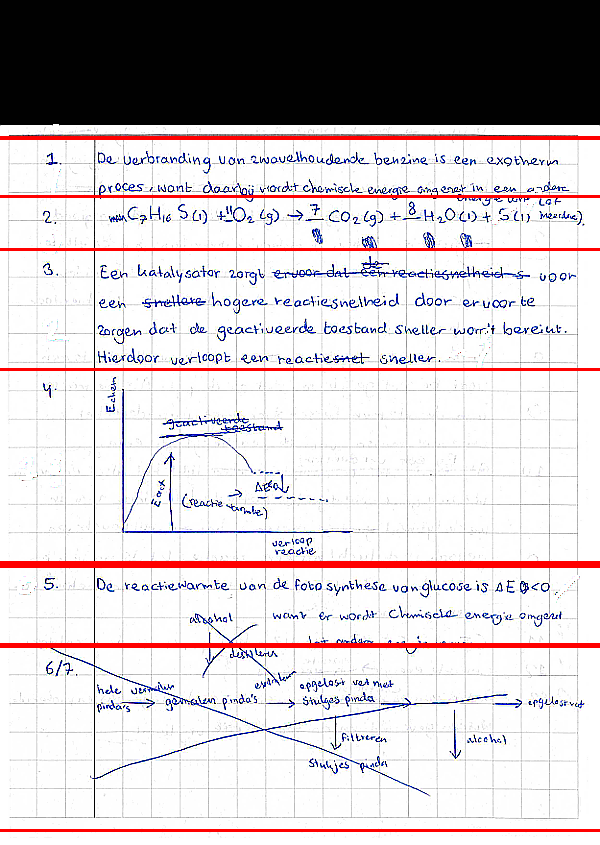 1. De verbranding van zwavelhoudende benzine is een exotherm
proces, want daarbij wordt chemische energie omgezet in een andere
2. C7H16 S(l) + 11O2(g) → 7 CO2(g) + 8 H2O(l) + S(l)
3. Een katalysator zorgt ervoor dat de een reactiesnelheid s voor
een snellere hogere reactiesnelheid door ervoor te
zorgen dat de geactiveerde toestand sneller wordt bereikt.
Hierdoor verloopt een reactiesnel sneller.
4.
Echem
geactiveerde
toestand
Eact
(reactie warmte)
→ ΔE<0
verloop
reactie
5. De reactiewarmte van de fotosynthese van glucose is ΔE<0.
want er wordt chemische energie omgezet
alcohol
6/7.
destilleren
hele pinda's vermalen → gemalen pinda's
opgelost vet met
stukjes pinda
→ opgelost vet
filtreren
alcohol
stukjes pinda